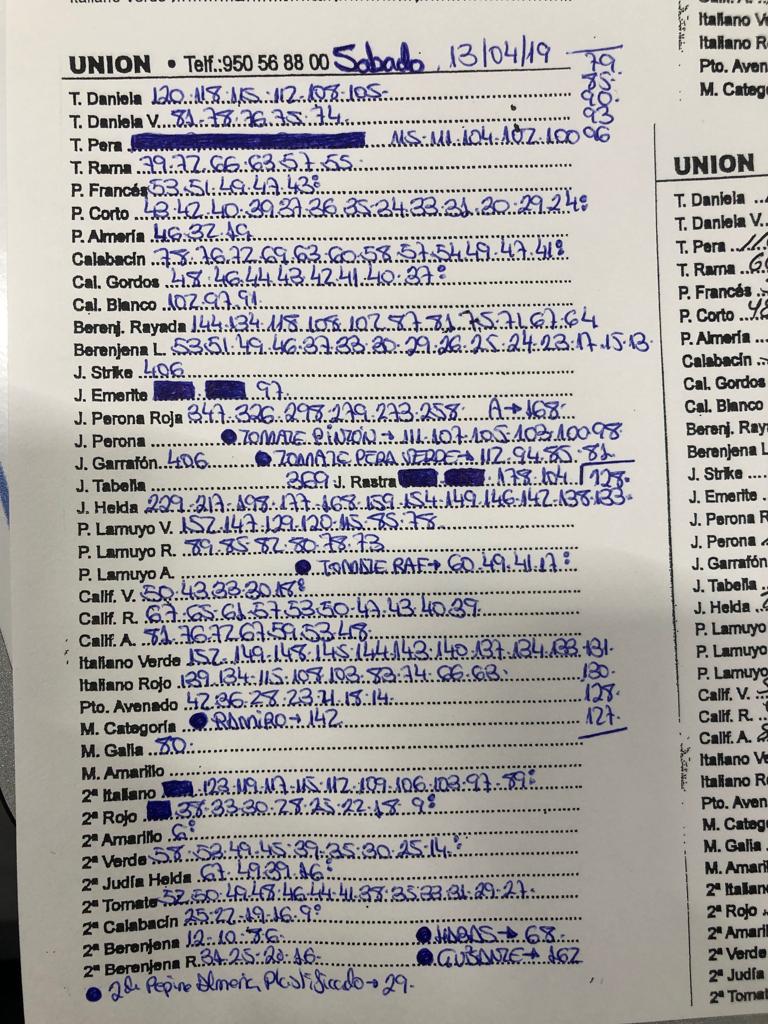 UNION • Telf.:950 56 88 00 Sabado 13/04/19
79
85.
90.
93
T. Daniela 120.118.115.112.108.105.
T. Daniela V. 81.78.76.75.74
T. Pera 115.111.104.102.100 96
T. Rama 79.72.66.63.57.55.
P. Francés 53.51.49.47.43:
P. Corto 43.42.40.39.37.36.35.34.33.31.30.29.24:
P. Almería 46.32.19
Calabacín 78.76.72.69.63.60.58.57.54.49.47.41:
Cal. Gordos 48.46.44.43.42.41.40.37:
Cal. Blanco 102.97.91
Berenj. Rayada 144.134.118.108.102.87.81.75.71.67.64
Berenjena L. 53.51.49.46.37.33.30.29.26.25.24.23.17.15.13.
J. Strike 406
J. Emerite 97.
J. Perona Roja 347.326.298.279.273.258. A→168.
J. Perona ● TOMATE PINTÓN→111.107.105.103.100 98
J. Garrafón 406 ● TOMATE PERA VERDE→112.94.85.81
J. Tabella 369 J. Rastra 178.104. 128.
J. Helda 229.217.198.177.168.159.154.149.146.142.138.133.
P. Lamuyo V. 152.147.129.120.115.85.78
P. Lamuyo R. 89.85.82.80.78.73
P. Lamuyo A. ● TOMATE RAF→60.49.41.17:
Calif. V. 50.43.33.30.18:
Calif. R. 67.65.61.57.53.50.47.43.40.39.
Calif. A. 81.76.72.67.59.53.48
Italiano Verde 152.149.148.145.144.143.140.137.134.133.131.
Italiano Rojo 139.134.115.108.103.83.74.66.63. 130.
Pto. Avenado 42.36.28.23.21.18.14. 128.
M. Categoría ● RAMIRO→142 127.
M. Galia 80.
M. Amarillo
2ª Italiano 123.119.117.115.112.109.106.103.97.89:
2ª Rojo 38.33.30.28.25.22.18.9:
2ª Amarillo 6:
2ª Verde 58.53.49.45.39.35.30.25.14:
2ª Judía Helda 67.49.39.16:
2ª Tomate 52.50.49.48.46.44.41.38.35.33.31.29.27.
2ª Calabacín 25.22.19.16.9:
2ª Berenjena 12.10.8.6. ● HABAS→68.
2ª Berenjena R. 31.25.20.16. ● GUISANTE→162
● 2da Pepino Almeria Plastificado→29.
Italiano
Pto. Aven
M. Categ
UNION
T. Daniela
T. Daniela V.
T. Pera
T. Rama
P. Francés
P. Corto
P. Almería
Calabacín
Cal. Gordos
Cal. Blanco
Berenj. Ray
Berenjena L
J. Strike
J. Emerite
J. Perona R
J. Perona
J. Garrafón
J. Tabella
J. Helda
P. Lamuyo
P. Lamuyo
P. Lamuyo
Calif. V.
Calif. R.
Calif. A.
Italiano Ve
Italiano Ro
Pto. Aven
M. Categ
M. Galia
M. Amari
2ª Italian
2ª Rojo
2ª Amari
2ª Verde
2ª Judía
2ª Tomat